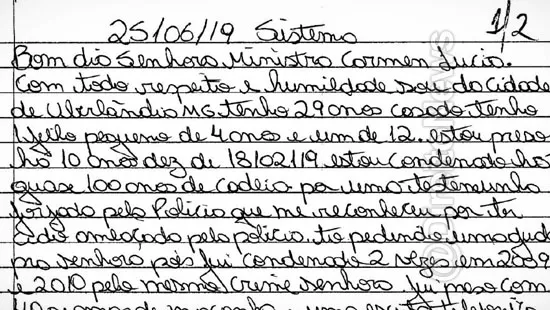 25/06/19 Sistema 1/2
Bom dia Senhora Ministra Carmen Lucia.
Com todo respeito e humildade sou da Cidade
de Uberlândia MG tenho 29 anos casado tenho
1 filho pequeno de 4 anos e um de 12. estou preso
há 10 anos dez de 18/02/19 estou condenado há
quase 100 anos de cadeia por uma testemunha
forjada pela Polícia que me reconheceu por ter
sido ameaçado pela polícia. to pedindo uma ajuda
pra senhora pois fui condenado 2 vezes em 2009
e 2010 pelo mesmo crime senhora fui preso com